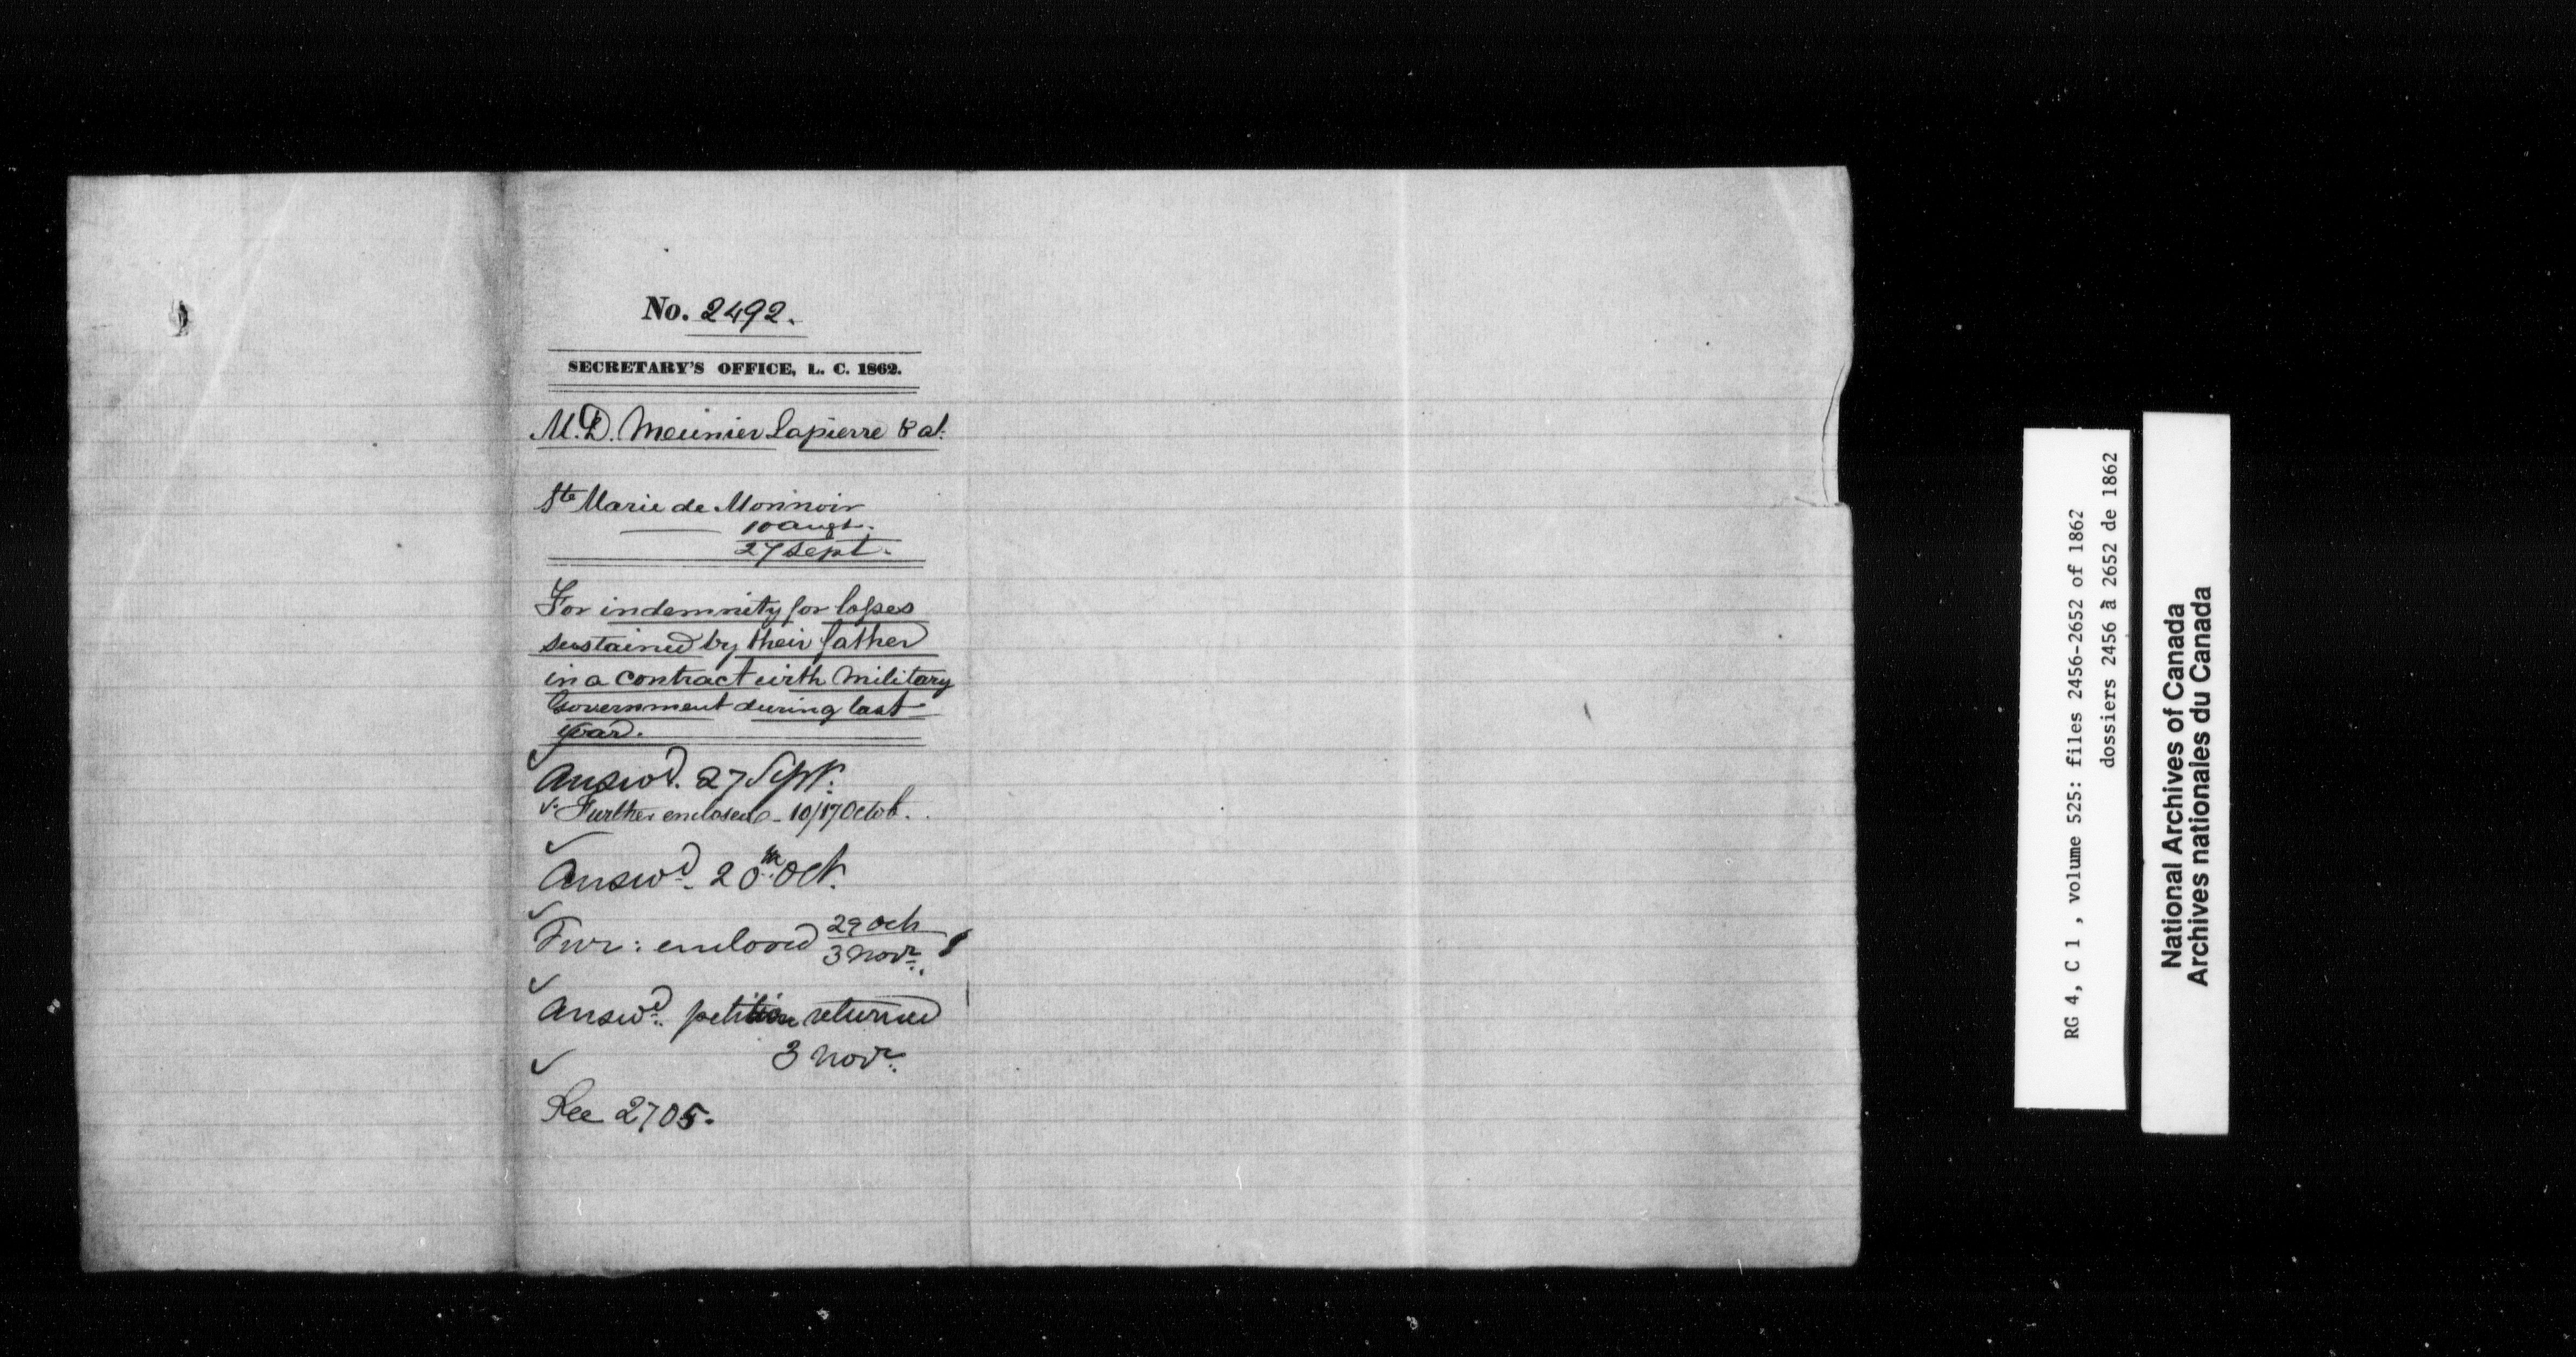 No. 2492.
SECRETARY'S OFFICE, L. C. 1862.
M. D. Meunier Lapierre & al.
Ste Marie de Monnoir
10 Augt.
27 Sept.
For indemnity for losses
sustained by their father
in a contract with Military
Government during last
war.
Answd. 27 Sept.
Further enclosed - 10/17 Octob.
Answd. 20th Oct.
Fur: enclosed 29 Oct
3 Novr.
Answd. petition returned
3 Novr.
See 2705.
RG 4, C 1 , volume 525: files 2456-2652 of 1862
dossiers 2456 à 2652 de 1862
National Archives of Canada
Archives nationales du Canada